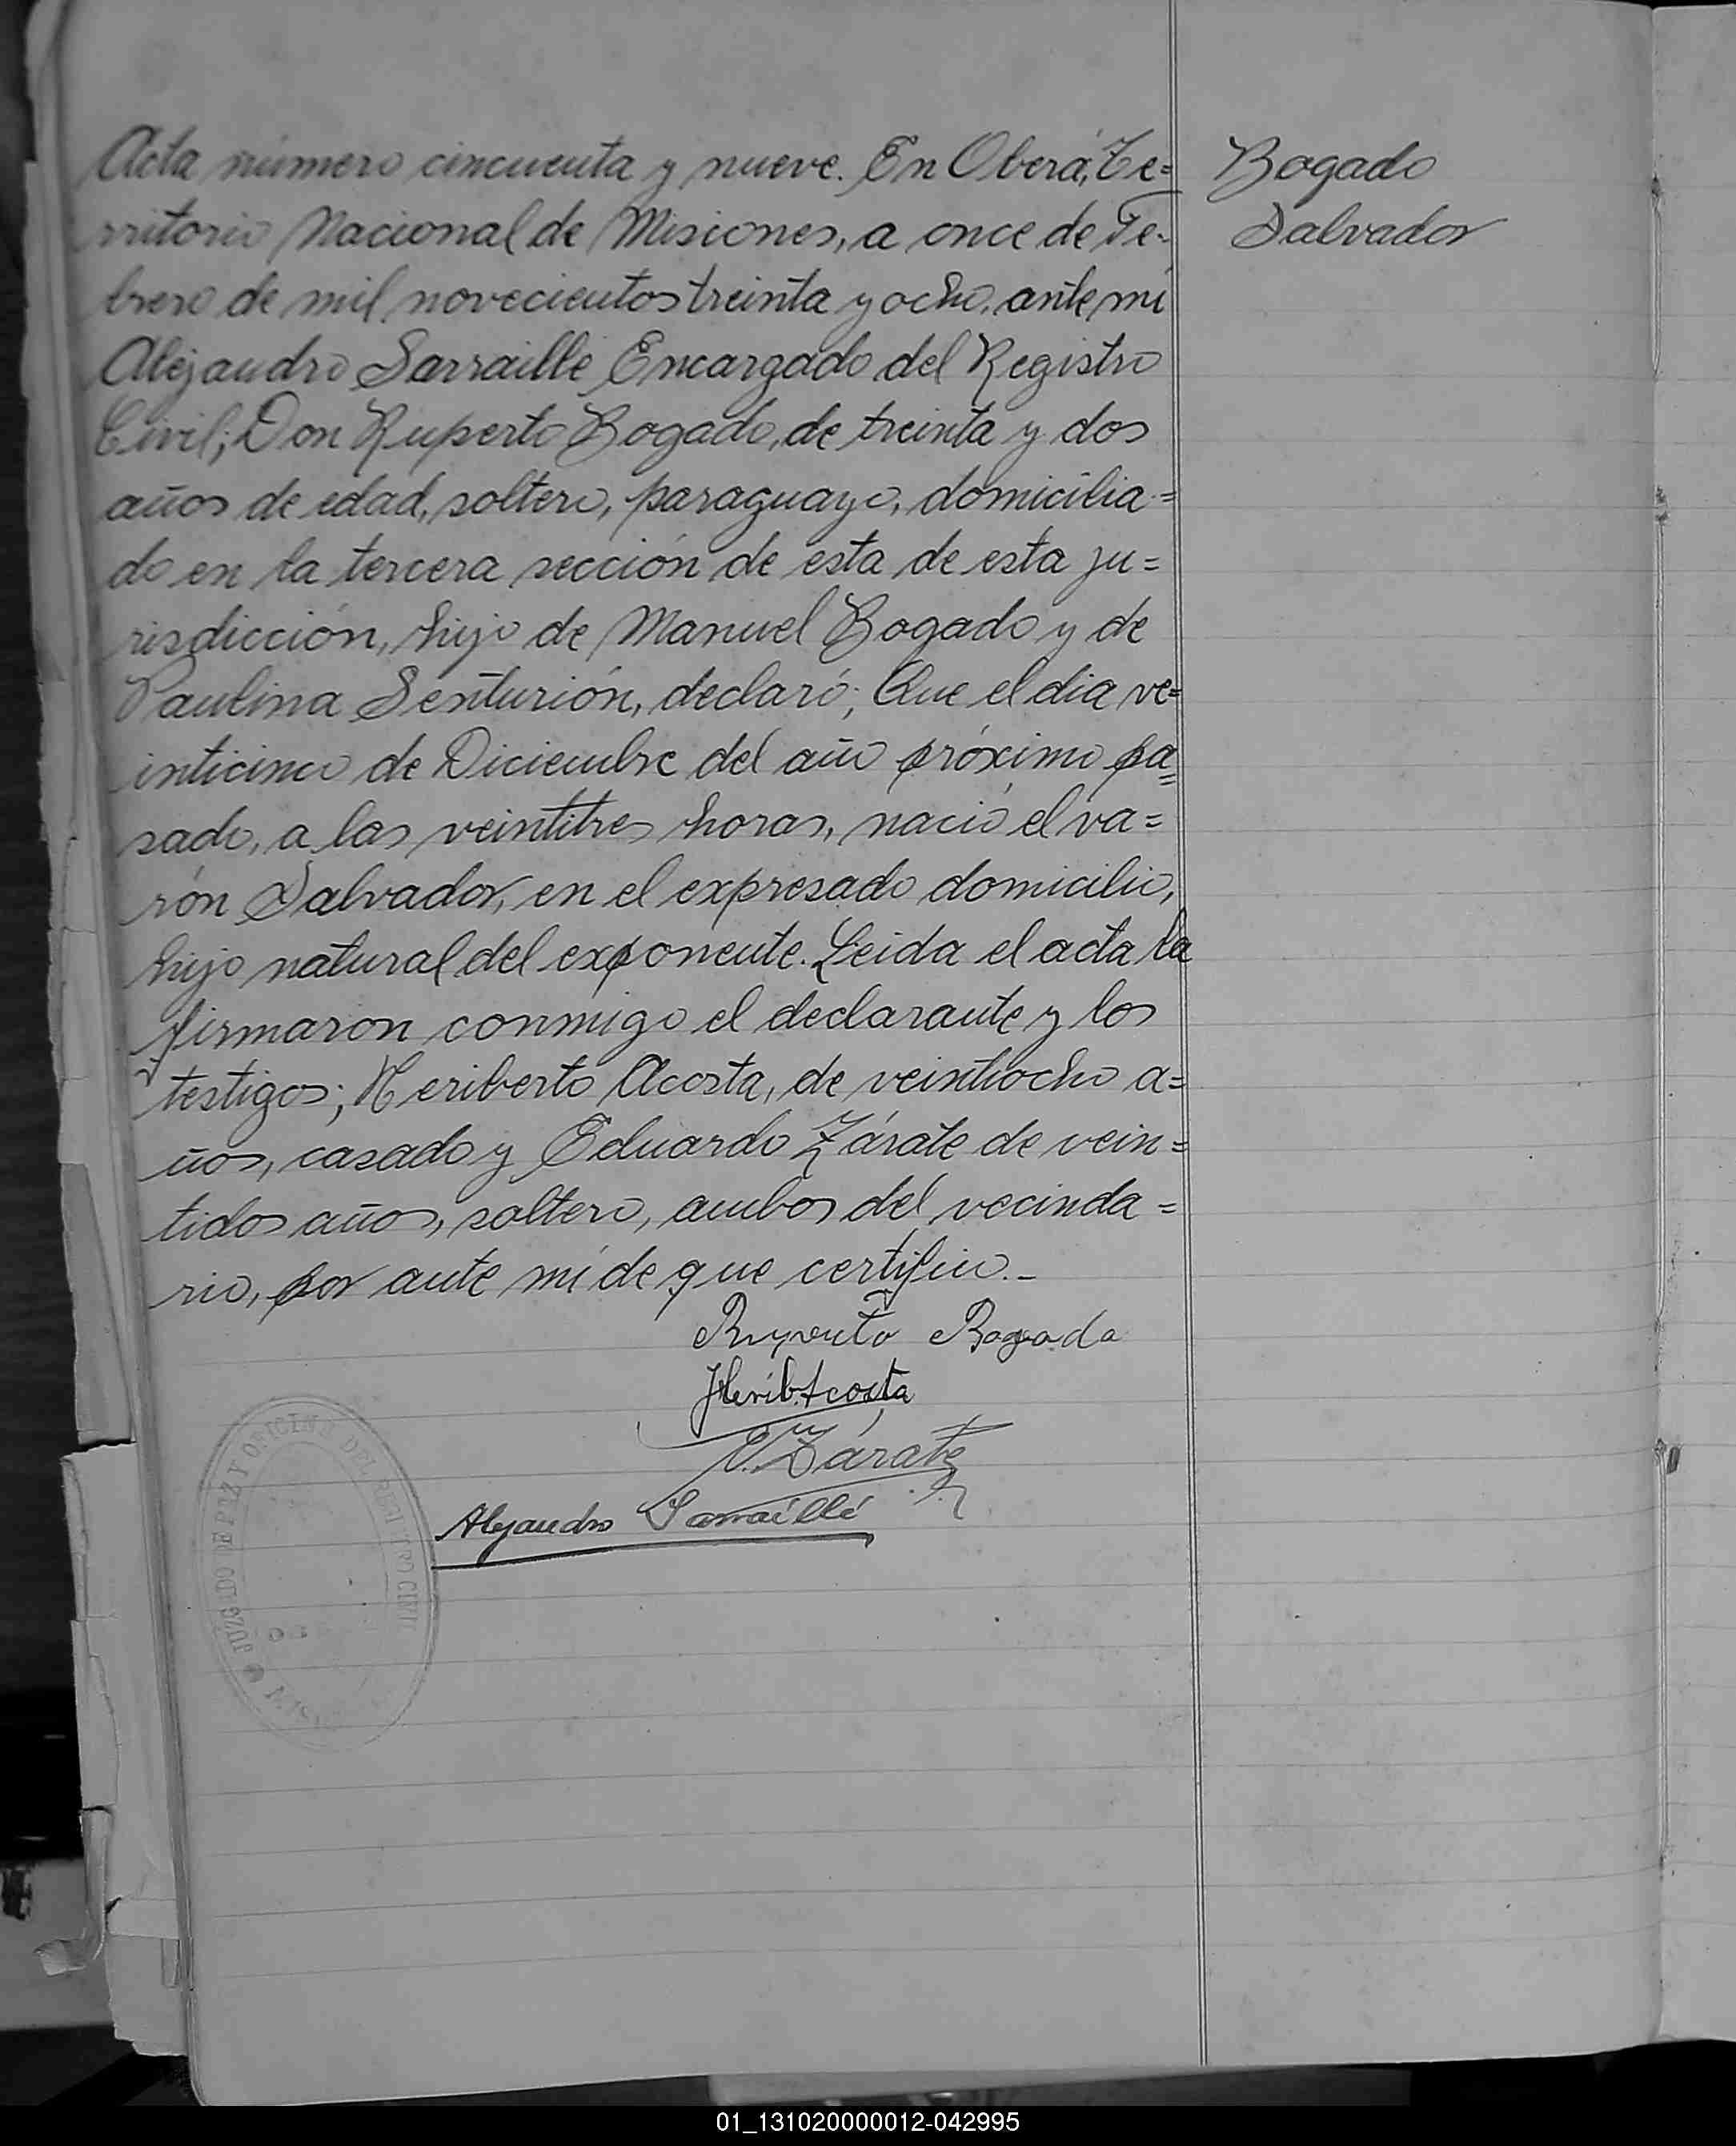 Acta número cincuenta y nueve. En Oberá, Te=
rritorio Nacional de Misiones, a once de Fe-
brero de mil novecientos treinta y ocho, ante mí
Alejandro Sarraillé Encargado del Registro
Civil; Don Ruperto Bogado, de treinta y dos
años de edad, soltero, paraguayo, domicilia=
do en la tercera sección de esta de esta ju=
risdicción, hijo de Manuel Bogado y de
Paulina Senturión, declaró; Que el dia ve=
inticinco de Diciembre del año próximo pa=
sado, a las veintitres horas, nació el va=
rón Salvador, en el expresado domicilio,
hijo natural del exponente. Leida el acta la
firmaron conmigo el declarante y los
testigos; Heriberto Acosta, de veintiocho a=
ños, casado y Eduardo Zárate de vein=
tidos años, soltero, ambos del vecinda=
rio, por ante mí de que certifico.-
Bogado
Salvador
Ruperto Bogado
Herib. Acosta
E. Zárate
Alejandro Sarraillé
JUZGADO DE PAZ Y OFICINA DEL REGISTRO CIVIL
01_131020000012-042995